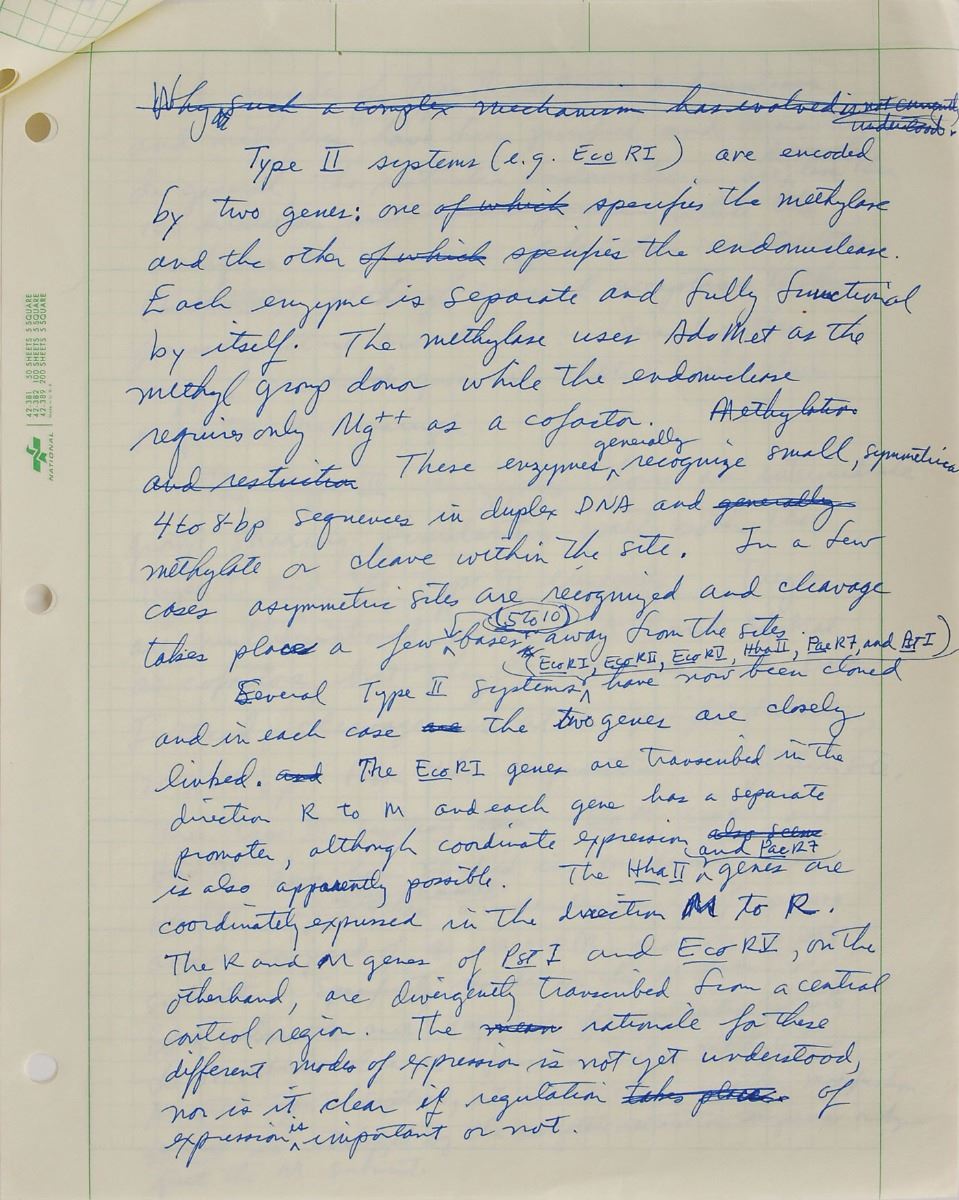 Why such a complex mechanism has evolved is not currently
understood.
Type II systems (e.g. Eco RI) are encoded
by two genes: one of which specifies the methylase
and the other of which specifies the endonuclease.
Each enzyme is separate and fully functional
by itself. The methylase uses AdoMet as the
methyl group donor while the endonuclease
requires only Mg++ as a cofactor. Methylation
generally
and restriction These enzymes recognize small, symmetrical
4 to 8-bp sequences in duplex DNA and generally
methylate or cleave within the site. In a few
cases asymmetric sites are recognized and cleavage
(5 to 10)
takes place a few bases away from the sites.
(EcoRI, EcoRII, EcoRV, HhaII, PaeR7, and PstI)
Several Type II systems have now been cloned
and in each case are the two genes are closely
linked. and The EcoRI genes are transcribed in the
direction R to M and each gene has a separate
promoter, although coordinate expression also seems
and PaeR7
is also apparently possible. The HhaII genes are
coordinately expressed in the direction M to R.
The R and M genes of PstI and EcoRV, on the
otherhand, are divergently transcribed from a central
control region. The mean rationale for these
different modes of expression is not yet understood,
nor is it clear if regulation takes place of
is
expression important or not.
42-381 50 SHEETS 5 SQUARE
42-382 100 SHEETS 5 SQUARE
42-389 200 SHEETS 5 SQUARE
NATIONAL